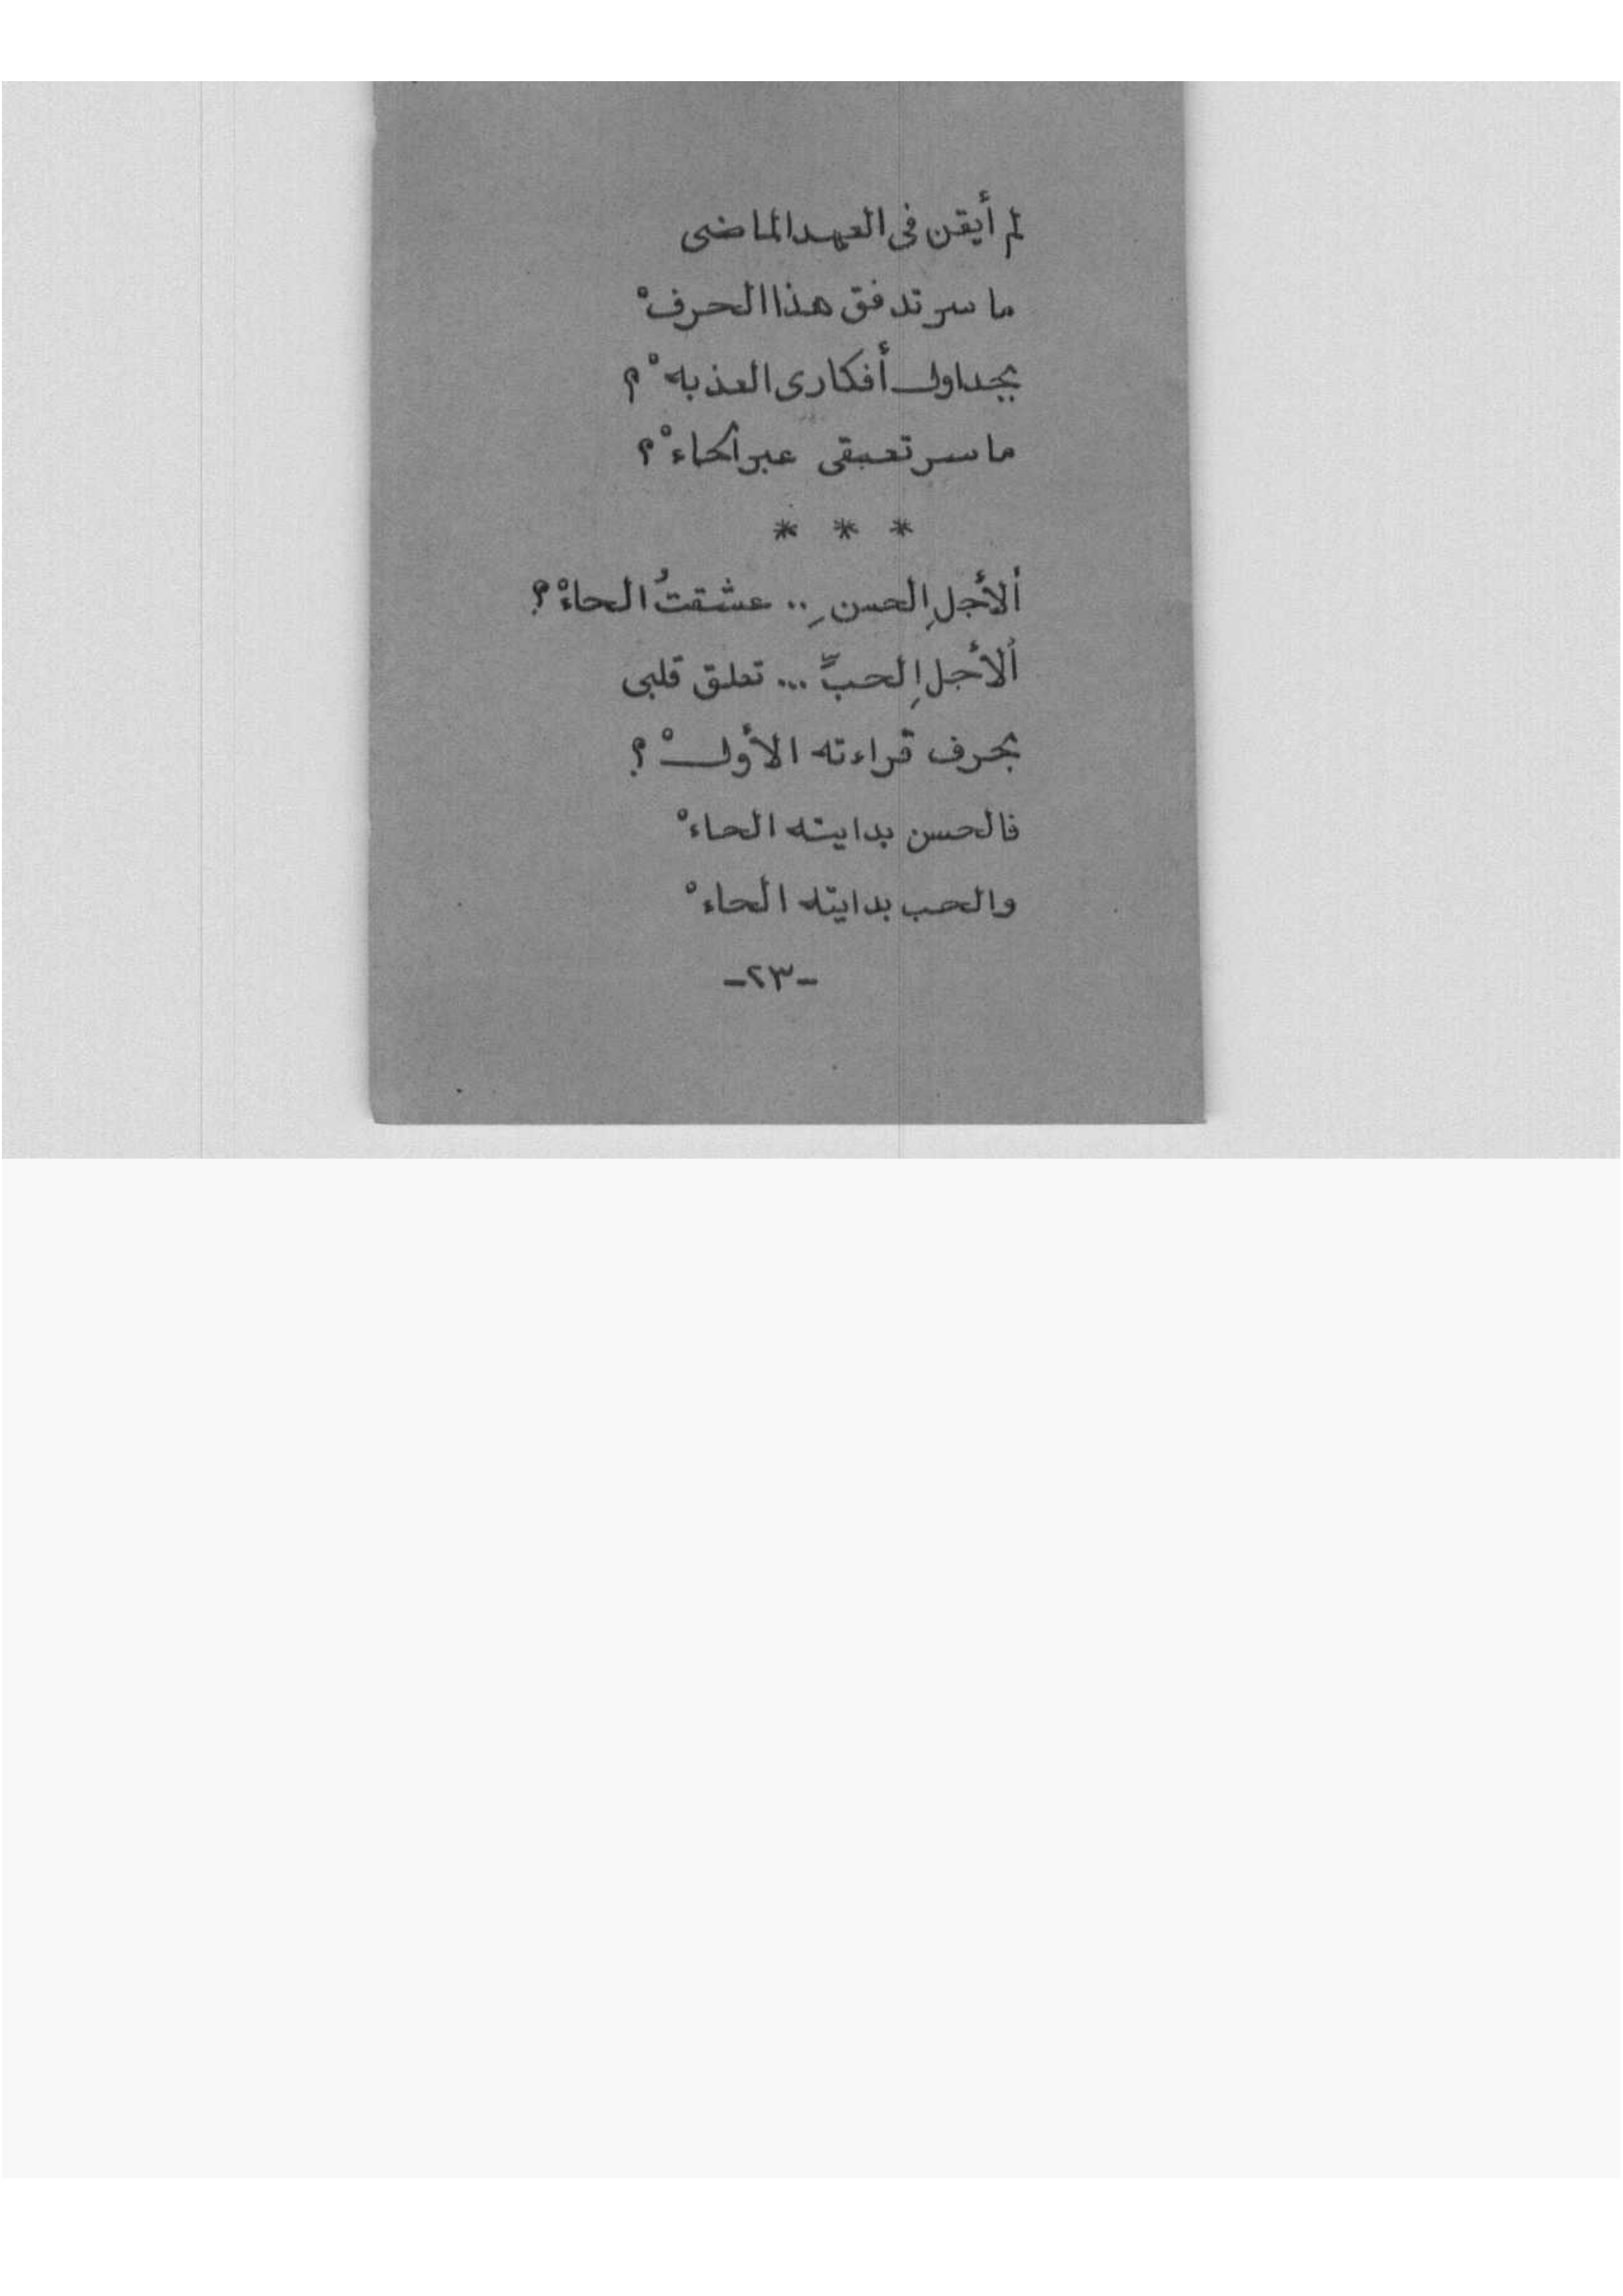 لم أيقن فى العهد الماضى
ما سر تدفق هذا الحرفْ
بجداول أفكارى العذبهْ ؟
ما سر تعبقى عبر الحاءْ ؟
* * *
ألأجلِ الحسنِ .. عشقتُ الحاءْ ؟
ألأجلِ الحبِّ ... تعلق قلبى
بحرف قراءته الأولْ ؟
فالحسن بدايته الحاءْ
والحب بدايته الحاءْ
-٢٣-